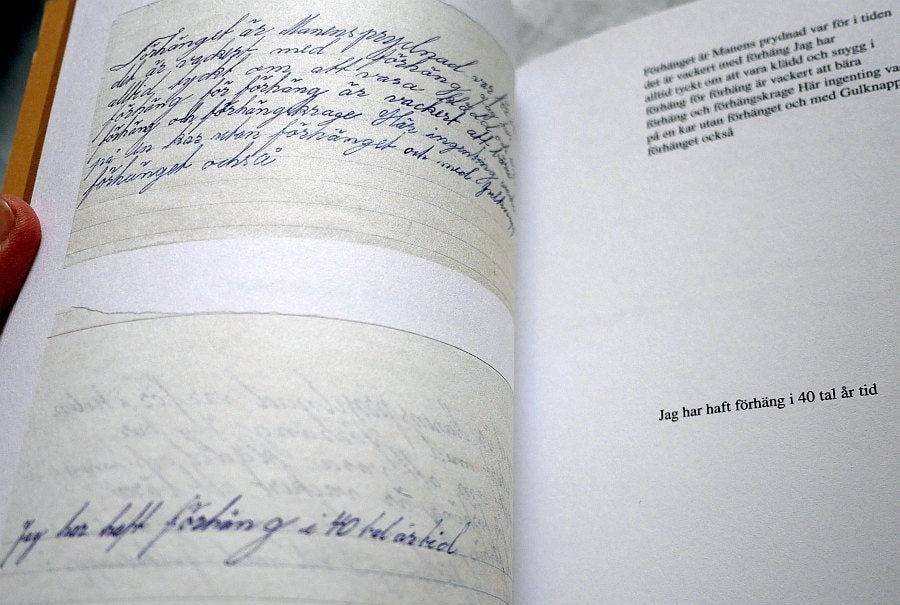 Förhänget är Manens prydnad var för
det är vackert med förhäng
alltid tyckt om att vara klädd
förhäng för förhäng är vackert att bära
förhäng och förhängskrage Här ingenting
på en kar utan förhänget och med Gulknapp
förhänget också
Jag har haft förhäng i 40 tal år tid
Förhänget är Manens prydnad var för i tiden
det är vackert med förhäng Jag har
alltid tyekt om att vara klädd och snygg i
förhäng för förhäng är vackert att bära
förhäng och förhängskrage Här ingenting va
på en kar utan förhänget och med Gulknapp
förhänget också
Jag har haft förhäng i 40 tal år tid